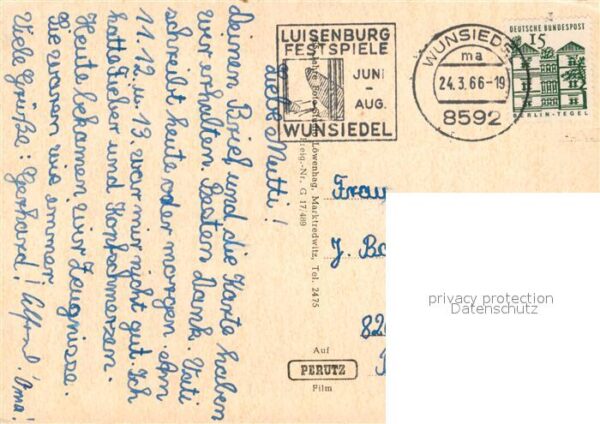 Liebe Mutti!
Deinen Brief und die Karte haben
wir erhalten. Besten Dank. Vati
schreibt heute oder morgen. Am
11. 12. u. 13. war mir nicht gut. Ich
hatte Fieber und Kopfschmerzen.
Heute bekamen wir Zeugnisse.
Sie waren wie immer.
Viele Grüße: Gerhard! Alfons! Oma!
LUISENBURG
FESTSPIELE
JUNI
-
AUG.
WUNSIEDEL
WUNSIEDEL
ma
24.3.66-19
8592
DEUTSCHE BUNDESPOST
15
BERLIN-TEGEL
Löwenhag, Marktredwitz, Tel. 2475
Freig.-Nr. G 17/489
Frau
J. Ba
820
Auf
PERUTZ
Film
privacy protection
Datenschutz